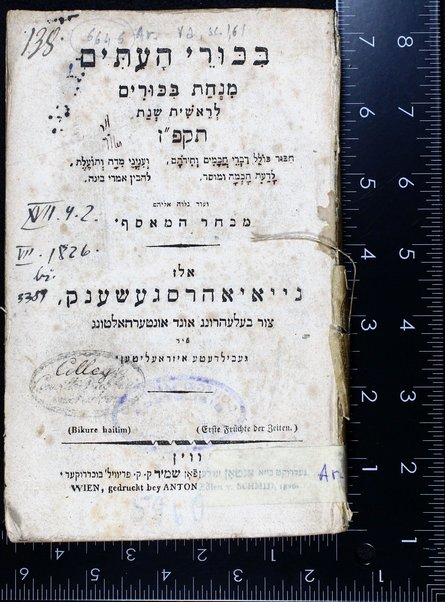 138.
6646
בִּכּוּרֵי הָעִתִּים
מִנְחַת בִּכּוּרִים
לְרֵאשִׁית שְׁנַת
תקפ״ז
חִבּוּר כּוֹלֵל דִבְרֵי חֲכָמִים וְחִידֹתָם, וְעִנְיְנֵי מִדָּה וְתוֹעֶלֶת,
לָדַעַת חָכְמָה וּמוּסָר, לְהָבִין אִמְרֵי בִינָה.
ועוד נלוה אליהם
מבחר המאסף׳
XVII. 4. 2.
VII. 1826.
3359
אלז
נייאיאהרסגעשענק,
צור בעלעהרונג אונד אונטערהאלטונג
פיר
געבילדעטע איזראעליטען׳
(Bikure haitim) (Erste Früchte der Zeiten.)
ווין
שמיד ק. ק. פריוויל׳ בוכדרוקער׳
WIEN, gedruckt bey ANTON v. SCHMID, 1826.
Ar.
8
7
6
5
4
3
2
1
1
2
3
4
5
6